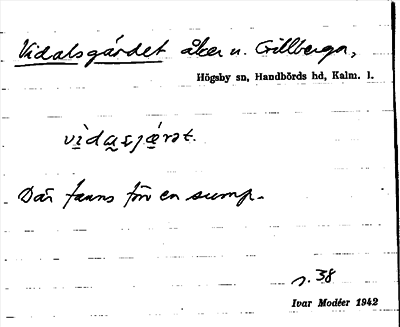 Vidalsgärdet åker u. Grillberga,
Högsby sn, Handbörds hd, Kalm. l.
Där fanns förr en sump.
s. 38
Ivar Modéer 1942